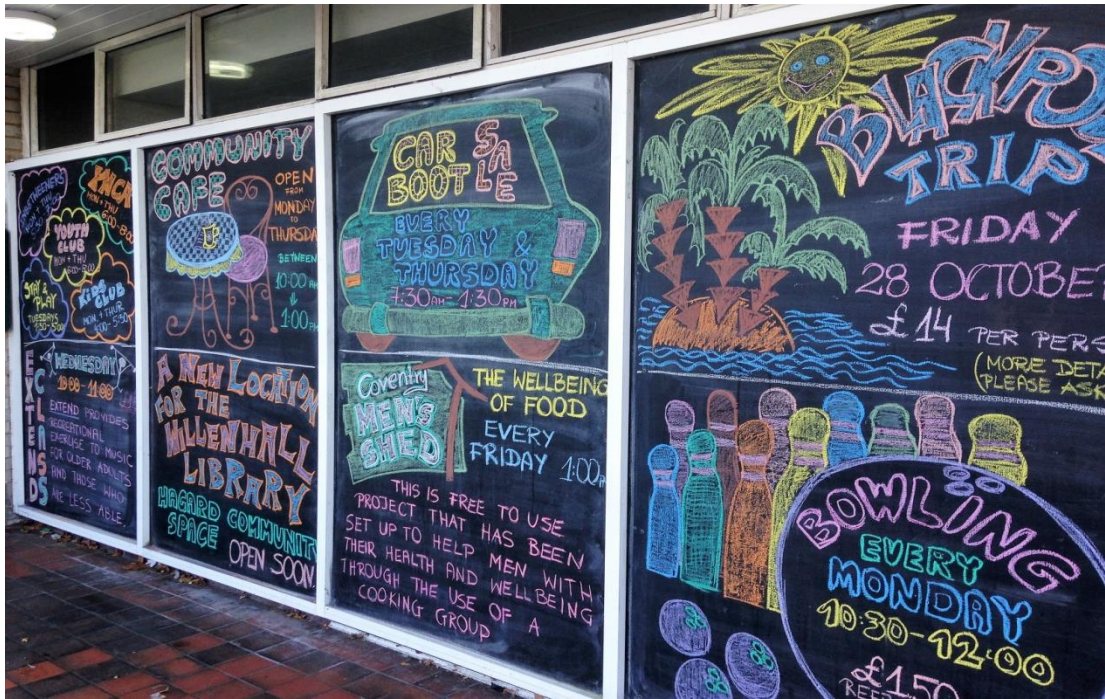 TWEENERS
YMCA
MON + THU
6:00-8:00
YOUTH
CLUB
MON + THU
6:00-8:00
STAY &
PLAY
TUESDAYS
1:30-5:00
KIDS
CLUB
MON + THUR
4:00-5:30
EXTEND
CLASS
WEDNESDAY
10:00-11:00
EXTEND PROVIDES
RECREATIONAL
EXERCISE TO MUSIC
FOR OLDER ADULTS
AND THOSE WHO
ARE LESS ABLE
COMMUNITY
CAFE
OPEN
FROM
MONDAY
TO
THURSDAY
BETWEEN
10:00 AM
1:00 PM
A NEW LOCATION
FOR THE
WILLENHALL
LIBRARY
HAGARD COMMUNITY
SPACE
OPEN SOON
CAR
BOOT
SALE
EVERY
TUESDAY &
THURSDAY
7:30AM - 1:30PM
Coventry
MEN'S
SHED
THE WELLBEING
OF FOOD
EVERY
FRIDAY 1:00
THIS IS FREE TO USE
PROJECT THAT HAS BEEN
SET UP TO HELP MEN WITH
THEIR HEALTH AND WELLBEING
THROUGH THE USE OF A
COOKING GROUP
BLACKPOO
TRIP
FRIDAY
28 OCTOBE
£14 PER PERS
(MORE DETA
PLEASE ASK
BOWLING
EVERY
MONDAY
10:30-12:00
£1.50